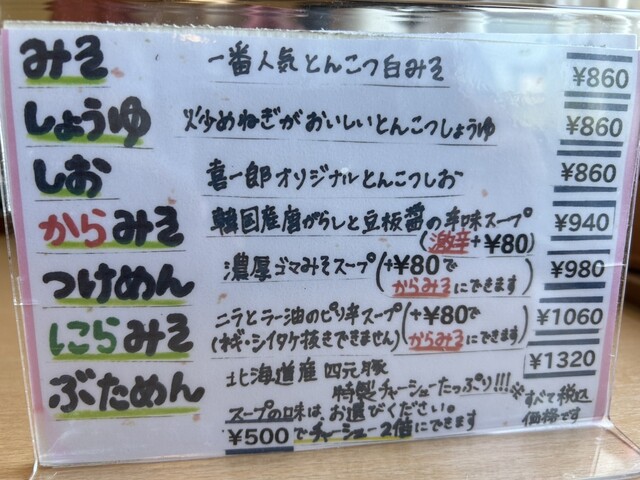 みそ 一番人気とんこつ白みそ ¥860
しょうゆ 炒めねぎがおいしいとんこつしょうゆ ¥860
しお 喜一郎オリジナルとんこつしお ¥860
からみそ 韓国産唐がらしと豆板醤の辛味スープ ¥940
(激辛+¥80)
つけめん 濃厚ゴマみそスープ(+¥80で ¥980
からみそにできます)
にらみそ ニラとラー油のピリ辛スープ(+¥80で ¥1060
(ネギ・シイタケ抜きできません) からみそにできます)
ぶためん 北海道産 四元豚 ¥1320
特製チャーシューたっぷり!!!
スープの味は、お選びください。
¥500でチャーシュー2倍にできます
※すべて税込
価格です